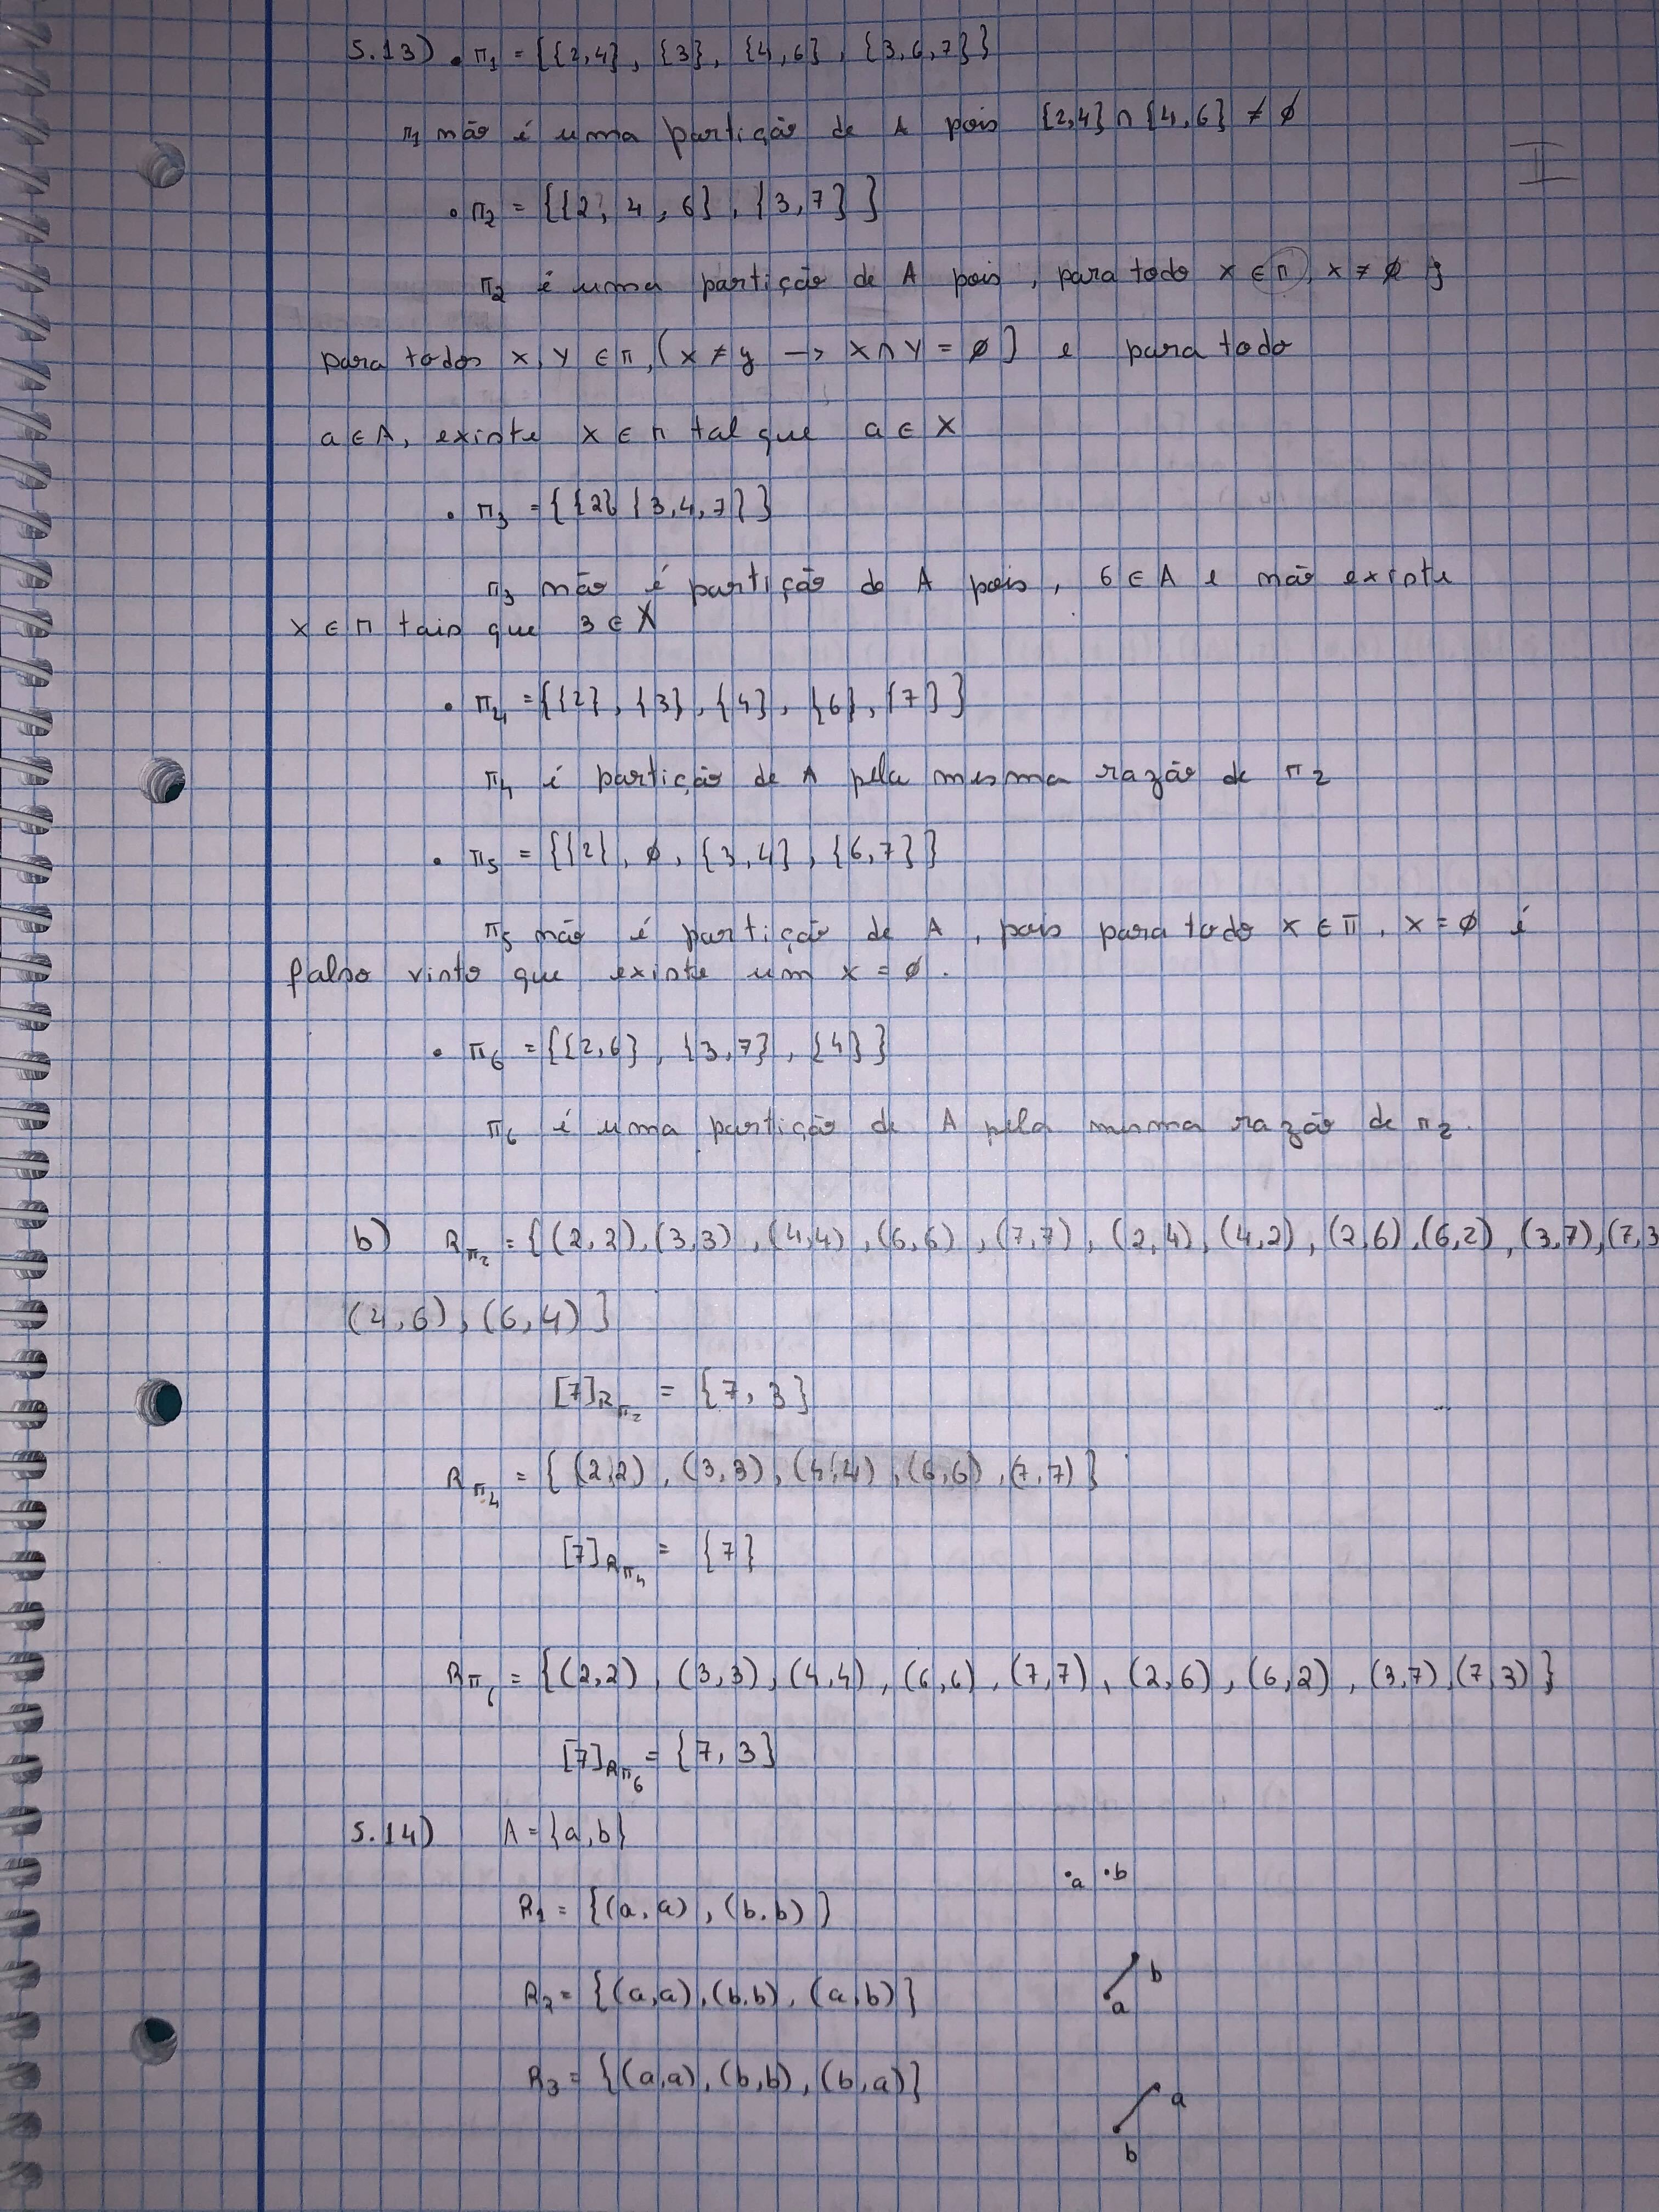 5.13) • π1 = {{2,4}, {3}, {4,6}, {3,6,7}}
π1 não é uma partição de A pois {2,4} ∩ {4,6} ≠ ∅
II
• π2 = {{2, 4, 6}, {3,7}}
π2 é uma partição de A pois, para todo x ∈ π, x ≠ ∅ ;
para todos x, y ∈ π, (x ≠ y → x ∩ y = ∅) e para todo
a ∈ A, existe x ∈ π tal que a ∈ X
• π3 = {{2} {3,4,7}}
π3 não é partição de A pois, 6 ∈ A e não existe
x ∈ π tais que 3 ∈ X
• π4 = {{2}, {3}, {4}, {6}, {7}}
π4 é partição de A pela mesma razão de π2
• π5 = {{2}, ∅, {3,4}, {6,7}}
π5 não é partição de A, pois para todo x ∈ π, x = ∅ é
falso visto que existe um x = ∅.
• π6 = {{2,6}, {3,7}, {4}}
π6 é uma partição de A pela mesma razão de π2.
b) Rπ2 = {(2,2), (3,3), (4,4), (6,6), (7,7), (2,4), (4,2), (2,6), (6,2), (3,7), (7,3
(4,6), (6,4)}
[7]Rπ2 = {7, 3}
Rπ4 = {(2,2), (3,3), (4,4), (6,6), (7,7)}
[7]Rπ4 = {7}
Rπ6 = {(2,2), (3,3), (4,4), (6,6), (7,7), (2,6), (6,2), (3,7), (7,3)}
[7]Rπ6 = {7, 3}
5.14) A = {a,b}
•a •b
R1 = {(a,a), (b,b)}
R2 = {(a,a), (b,b), (a,b)}
b
a
R3 = {(a,a), (b,b), (b,a)}
a
b